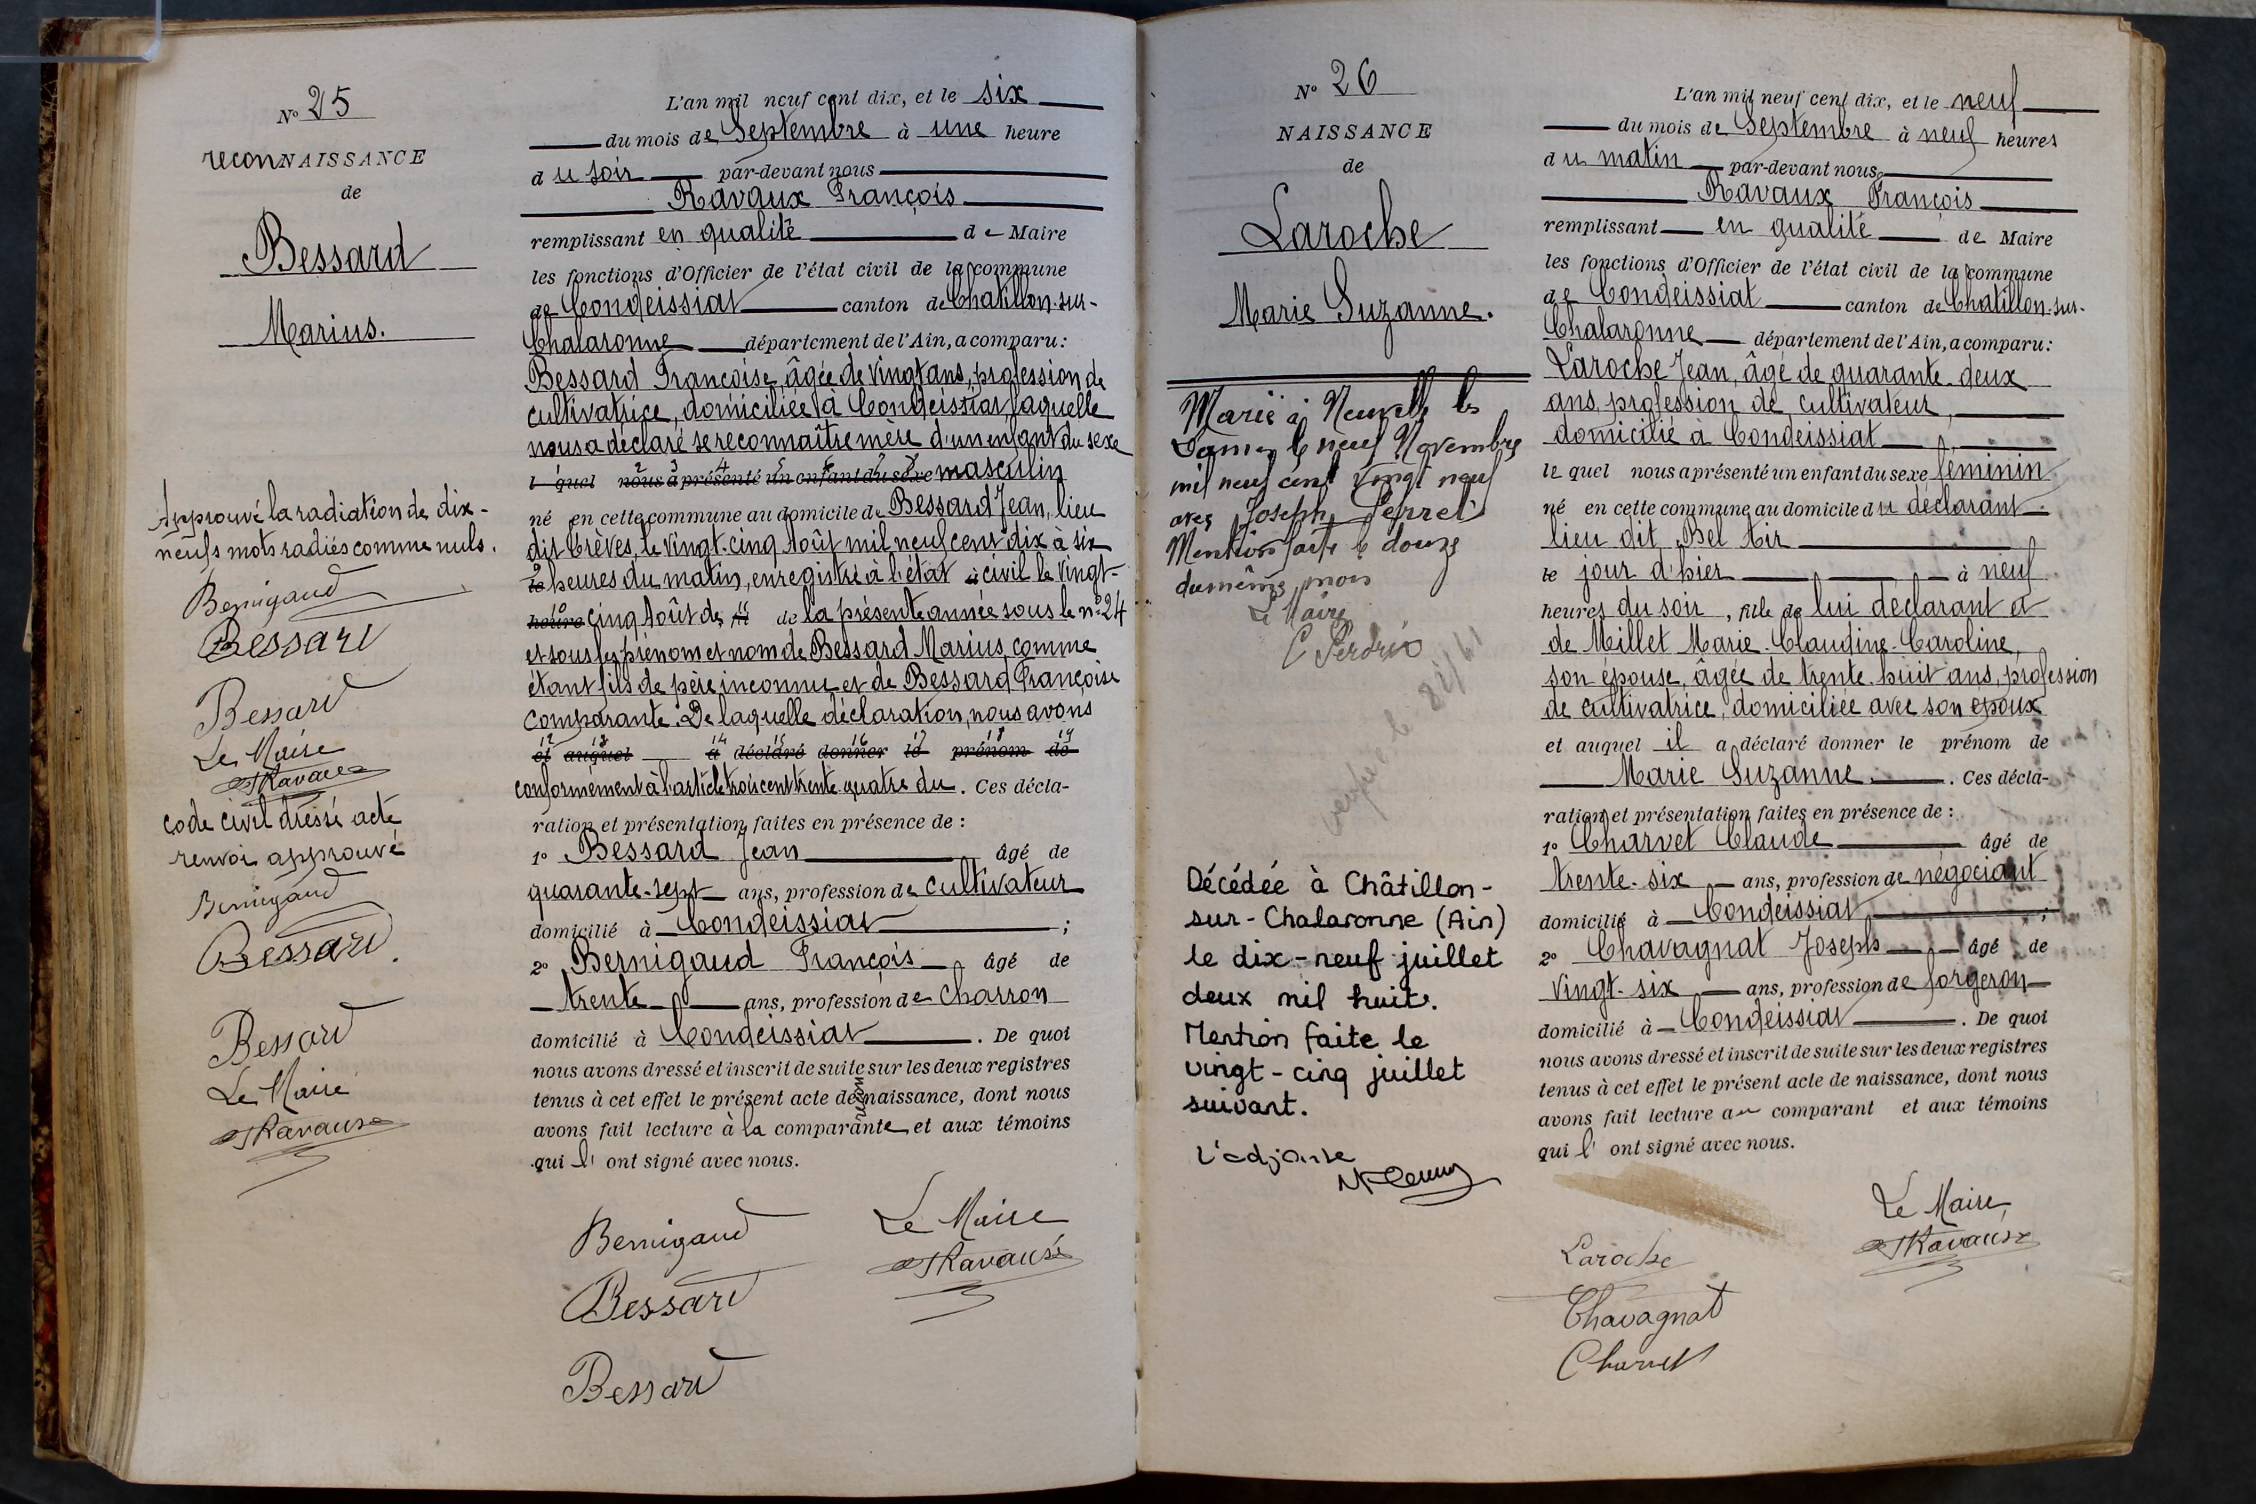 N° 25
reconNAISSANCE
de
Bessard
Marius.
Approuvé la radiation de dix-
neufs mots radiés comme nuls.
Bernigaud
Bessard
Bessard
Le Maire
Ravaux
code civil dressé acte
renvoi approuvé
Bernigaud
Bessard.
Bessard
Le Maire
Ravaux
L'an mil neuf cent dix, et le six
du mois de Septembre à une heure
du soir par-devant nous
Ravaux François
remplissant en qualité de Maire
les fonctions d'Officier de l'état civil de la commune
de Condeissiat canton de Chatillon-sur-
Chalaronne département de l'Ain, a comparu :
Bessard Françoise, âgée de vingt ans, profession de
cultivatrice, domiciliée à Condeissiat, laquelle
nous a déclaré se reconnaître mère d'un enfant du sexe
1 2 3 4 5 6 7 8
l quel nous a présenté un enfant du sexe masculin
né en cette commune au domicile de Bessard Jean, lieu
dit Crèves, le vingt-cinq Août mil neuf cent dix à six
9
le heures du matin, enregistré à l'état à civil le vingt-
10 11
heure cinq Août de fil de la présente année sous le n° 24
et sous les prénom et nom de Bessard Marius, comme
étant fils de père inconnu et de Bessard Françoise
comparante. De laquelle déclaration, nous avons
12 13 14 15 16 17 18 19
et auquel a déclaré donner le prénom de
conformément à l'article trois cent trente-quatre du . Ces décla-
ration et présentation faites en présence de :
1° Bessard Jean âgé de
quarante-sept ans, profession de cultivateur
domicilié à Condeissiat ;
2° Bernigaud François âgé de
trente ans, profession de charron
domicilié à Condeissiat . De quoi
nous avons dressé et inscrit de suite sur les deux registres
tenus à cet effet le présent acte de reconnaissance, dont nous
avons fait lecture à la comparante et aux témoins
qui l' ont signé avec nous.
Bernigaud
Le Maire
Ravaux
Bessard
Bessard
N° 26
NAISSANCE
de
Laroche
Marie Suzanne.
Marié à Neuville les
Dames le neuf Novembre
mil neuf cent vingt neuf
avec Joseph Perret
Mention faite le douze
du même mois
Le Maire
Décédée à Châtillon-
sur-Chalaronne (Ain)
le dix-neuf juillet
deux mil huit.
Mention faite le
vingt-cinq juillet
suivant.
L'adjointe
L'an mil neuf cent dix, et le neuf
du mois de Septembre à neuf heures
du matin par-devant nous
Ravaux François
remplissant en qualité de Maire
les fonctions d'Officier de l'état civil de la commune
de Condeissiat canton de Chatillon-sur-
Chalaronne département de l'Ain, a comparu :
Laroche Jean, âgé de quarante-deux
ans, profession de cultivateur,
domicilié à Condeissiat
le quel nous a présenté un enfant du sexe féminin
né en cette commune au domicile du déclarant
lieu dit Bel Air
le jour d'hier à neuf
heures du soir, fille de lui déclarant et
de Millet Marie-Claudine-Caroline,
son épouse, âgée de trente-huit ans, profession
de cultivatrice, domiciliée avec son époux
et auquel il a déclaré donner le prénom de
Marie Suzanne . Ces décla-
ration et présentation faites en présence de :
1° Charvet Claude âgé de
trente-six ans, profession de négociant
domicilié à Condeissiat ;
2° Chavagnat Joseph âgé de
vingt-six ans, profession de forgeron
domicilié à Condeissiat . De quoi
nous avons dressé et inscrit de suite sur les deux registres
tenus à cet effet le présent acte de naissance, dont nous
avons fait lecture au comparant et aux témoins
qui l' ont signé avec nous.
Le Maire,
Ravaux
Laroche
Chavagnat
Charvet